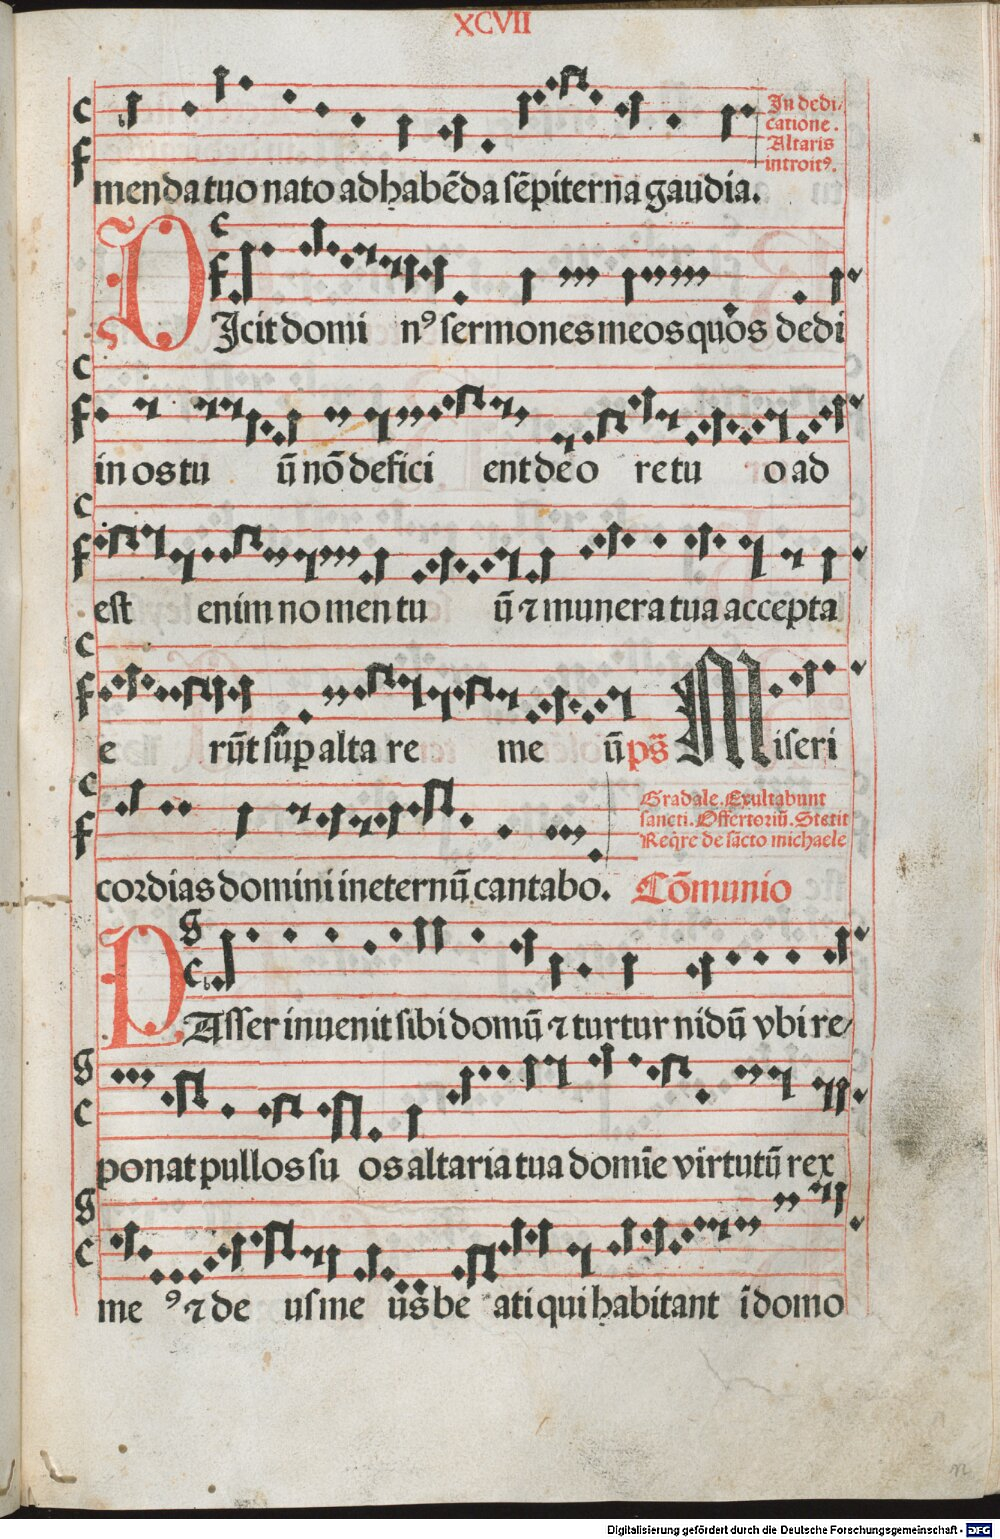 XCVII
In dedi/
catione.
Altaris
introitꝰ.
menda tuo nato ad habēda sēpiterna gaudia.
DJcit domi nꝰ sermones meos quos dedi
in os tu ū nō defici ent de o re tu o ad
est enim nomen tu ū ⁊ munera tua accepta
e rūt sup alta re me ū ps̄ Miseri
Gradale. Exultabunt
sancti. Offertoriū. Stetit
Reqͥre de sācto michaele
cordias domini in eternū cantabo. Cōmunio
PAsser inuenit sibi domū ⁊ turtur nidū vbi re/
ponat pullos su os altaria tua domīe virtutū rex
me ꝰ ⁊ de us me us̄ be ati qui habitant ī domo
Digitalisierung gefördert durch die Deutsche Forschungsgemeinschaft - DFG